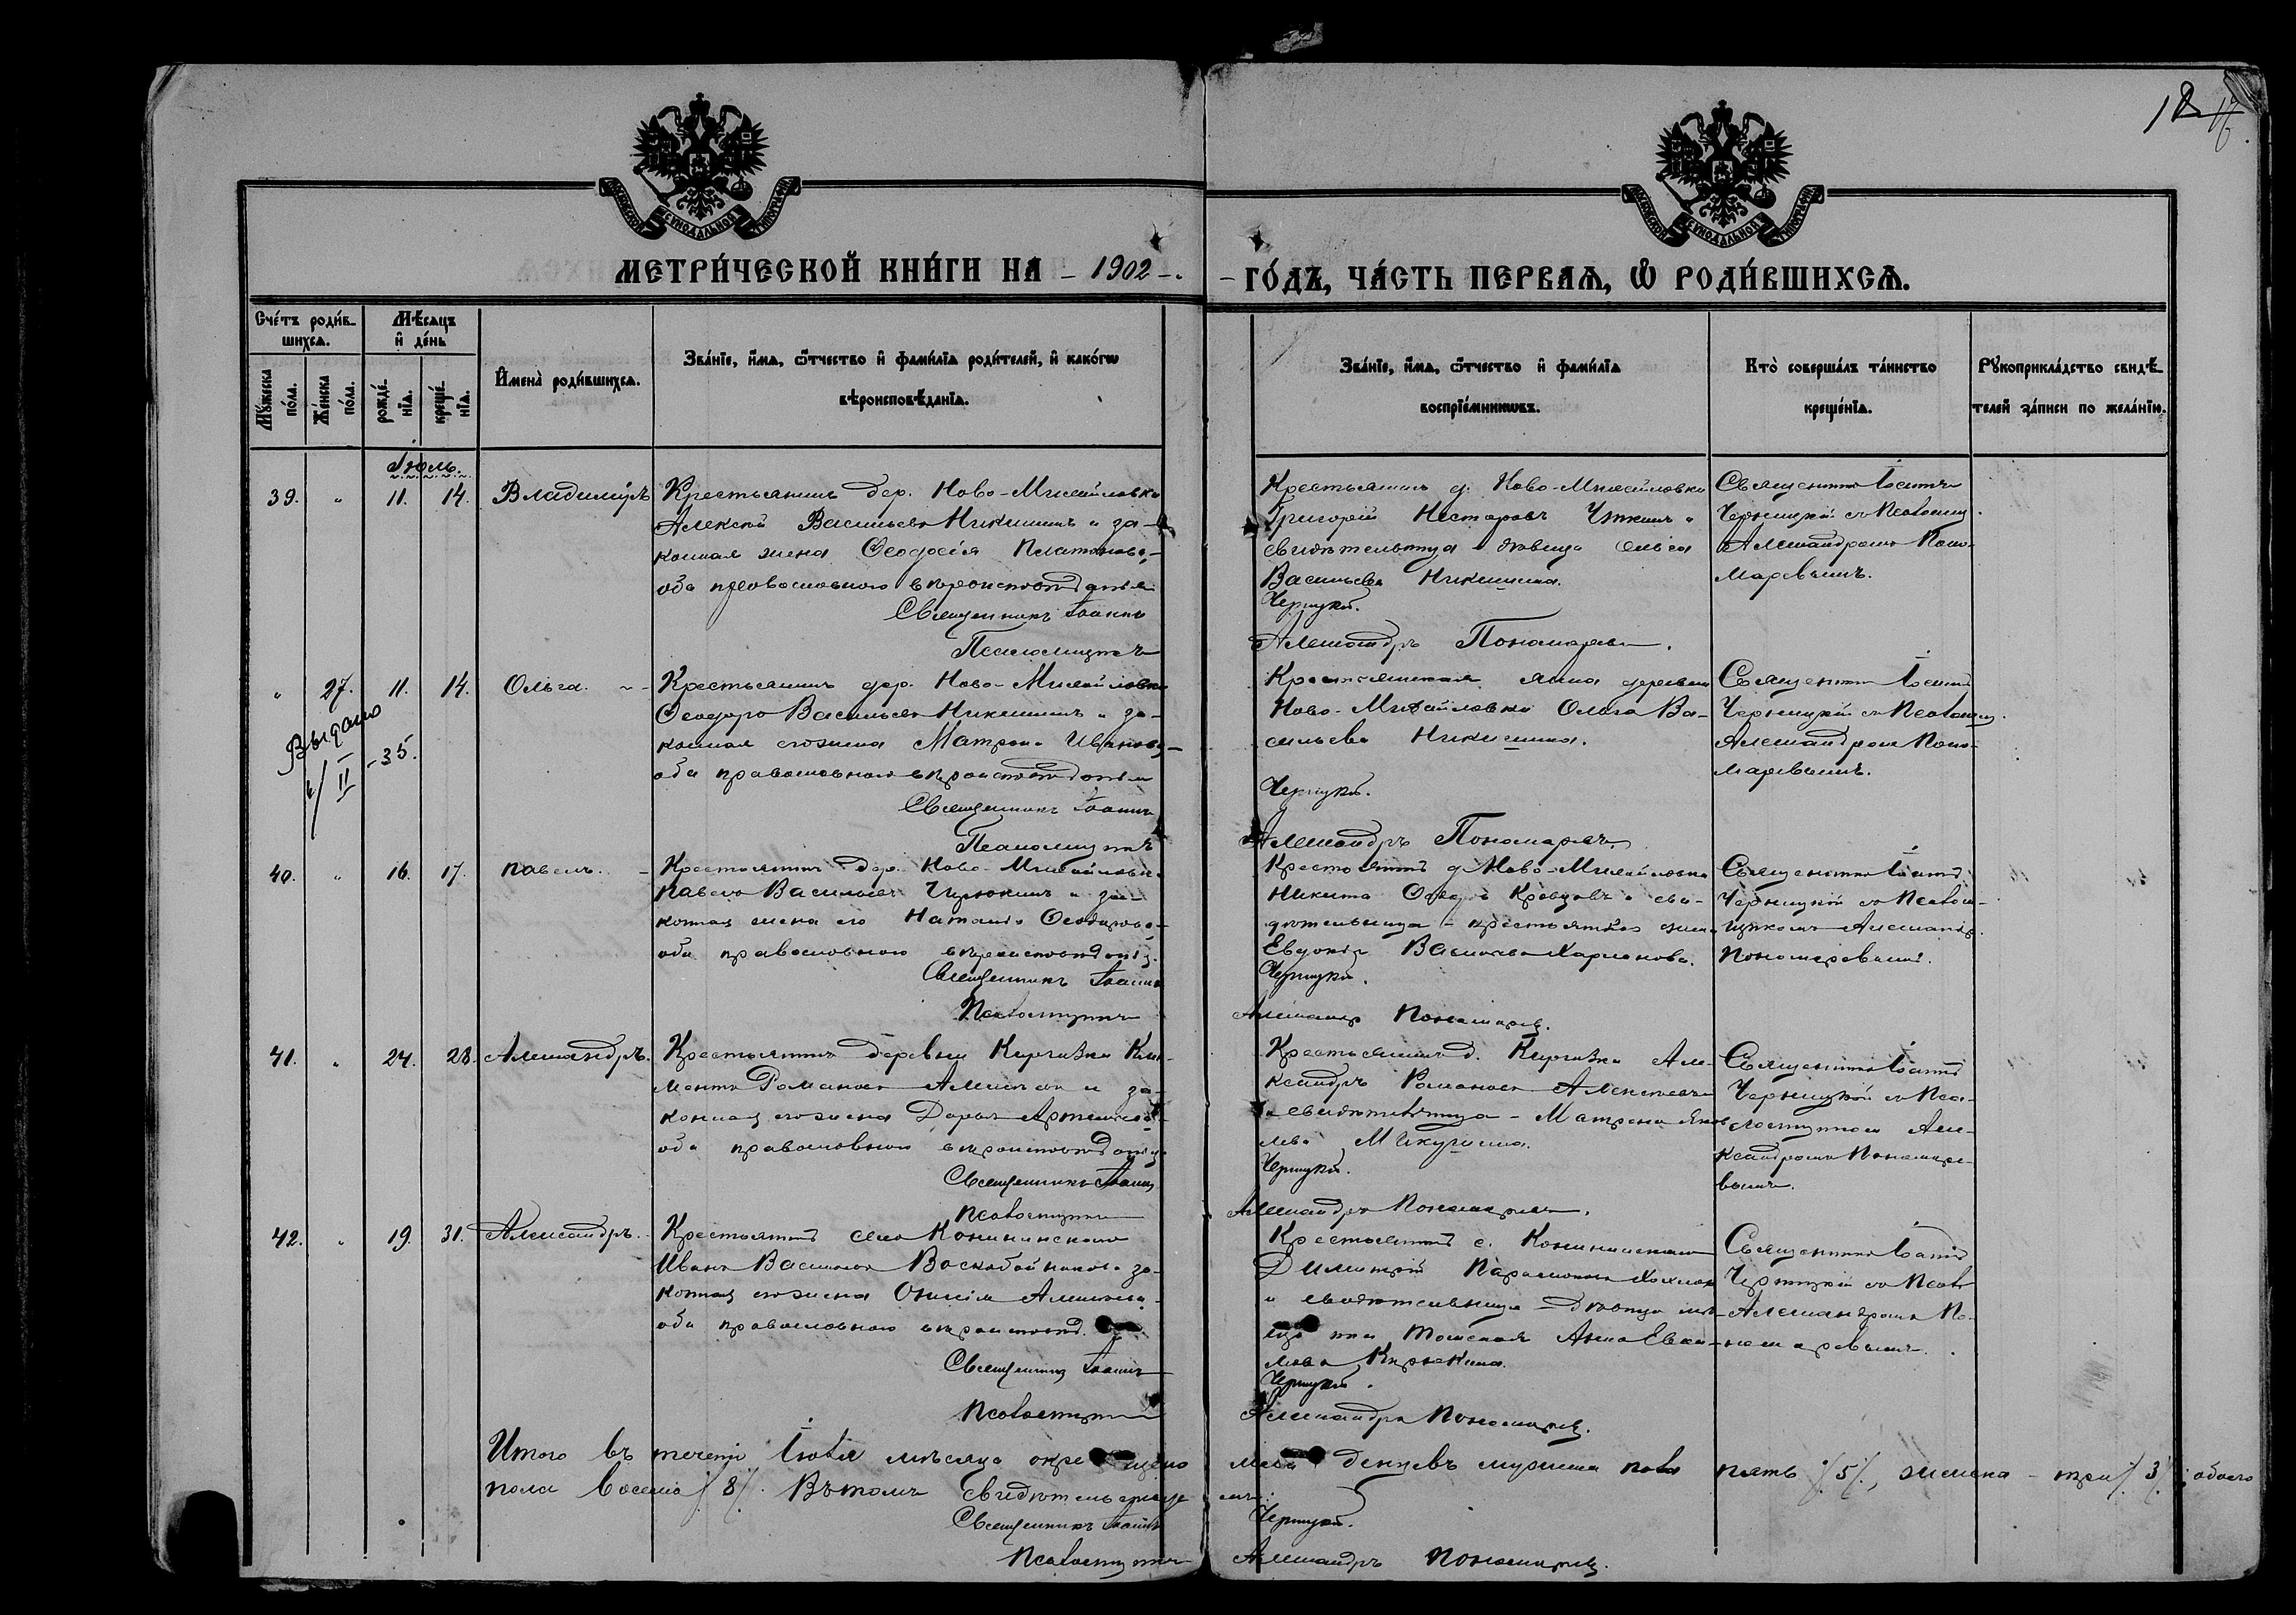 18 17
МЕТРИ́ЧЕСКОЙ КНИ́ГИ НА – 1902 –
ГО́ДЪ, ЧА́СТЬ ПЕРВАѦ, Ѿ РОДИ́ВШИХСѦ.
Сче́тъ роди́в-
шихсѧ.
Мѣ́сѧцъ
и҆ де́нь
Мꙋ́жеска
по́ла.
Же́нска
по́ла.
рожде́-
нїѧ.
креще́-
нїѧ.
И҆мена̀ роди́вшихсѧ.
Зва́нїе, и҆́мѧ, ѻ҆́тчество и҆ фами́лїѧ роди́телей, и҆ како́гѡ
вѣроисповѣ́данїѧ.
Зва́нїе, и҆́мѧ, ѻ҆́тчество и҆ фами́лїѧ
воспрїе́мникѡвъ.
Кто̀ соверша́лъ та́инство
креще́нїѧ.
Рꙋкоприкла́дство свидѣ́-
телей за́писи по жела́нїю.
Іюль.
39. " 11. 14. Владиміръ
Крестьянинъ дер. Ново-Михайловки
Алексей Васильевъ Никишинъ и за-
конная жена Ѳеодосія Платонова,
оба православнаго вѣроисповѣданія
Священникъ Іоаннъ
Псаломщикъ
Крестьянинъ д. Ново-Михайловки
Григорій Нестеровъ и
свидѣтельница дѣвица Ольга
Васильева Никишина.
Черницкій.
Александръ Пономаревъ.
Священникъ Іоаннъ
Черницкій съ Псаломщ.
Александромъ Поно-
маревымъ.
" 27. 11. 14. Ольга.
Выдано
II –35.
Крестьянинъ дер. Ново-Михайловки
Ѳеодоръ Васильевъ Никишинъ и за-
конная его жена Матрона Иванова,
оба православнаго вѣроисповѣданія
Священникъ Іоаннъ
Псаломщикъ
Крестьянская жена деревни
Ново-Михайловки Ольга Ва-
сильева Никишина.
Черницкій.
Александръ Пономаревъ
Священникъ Іоаннъ
Черницкій съ Псаломщ.
Александромъ Поно-
маревымъ.
40. " 16. 17. Павелъ.
Крестьянинъ дер. Ново-Михайловки
Павелъ Васильевъ и за-
конная жена его Наталія Ѳеодорова,
оба православнаго вѣроисповѣданія.
Священникъ Іоаннъ
Псаломщикъ
Крестьянинъ д. Ново-Михайловки
Никита Кревцовъ и сви-
дѣтельница – крестьянская жена
Евдокія Васильева Харланова.
Черницкій.
Александръ Пономаревъ.
Священникъ Іоаннъ
Черницкій съ Псалом-
щикомъ Александр.
Пономаревымъ.
41. " 24. 28. Александръ.
Крестьянинъ деревни Киргизки Кли-
ментъ Романовъ Алексѣевъ и за-
конная его жена Дарья
оба православнаго вѣроисповѣданія
Священникъ Іоаннъ
Псаломщикъ
Крестьянинъ д. Киргизки Але-
ксандръ Романовъ Алексѣевъ
и свидѣтельница – Матрона
Микушина.
Черницкій.
Александръ Пономаревъ.
Священникъ Іоаннъ
Черницкій съ Пса-
ломщикомъ Але-
ксандромъ Пономаре-
вымъ.
42. " 19. 31. Александръ.
Крестьянинъ села Конининскаго
Иванъ Васильевъ Воскобойниковъ за-
конная его жена Алексѣева
оба православнаго вѣроисповѣд.
Священникъ Іоаннъ
Псаломщикъ
Крестьянинъ с. Конининскаго
Димитрій
и свидѣтельница – дѣвица мѣ-
щанка Томская Анна
Кирюкина.
Черницкій.
Александръ Пономаревъ.
Священникъ Іоаннъ
Черницкій съ Псал.
Александромъ По-
номаревымъ.
Итого въ теченіи Іюля мѣсяца окрещено младенцевъ мужеска пола пять /5/, женска – три /3/, обоего
пола восемь /8/. Въ томъ свидѣтельствуемъ:
Священникъ Іоаннъ Черницкій.
Псаломщикъ Александръ Пономаревъ.